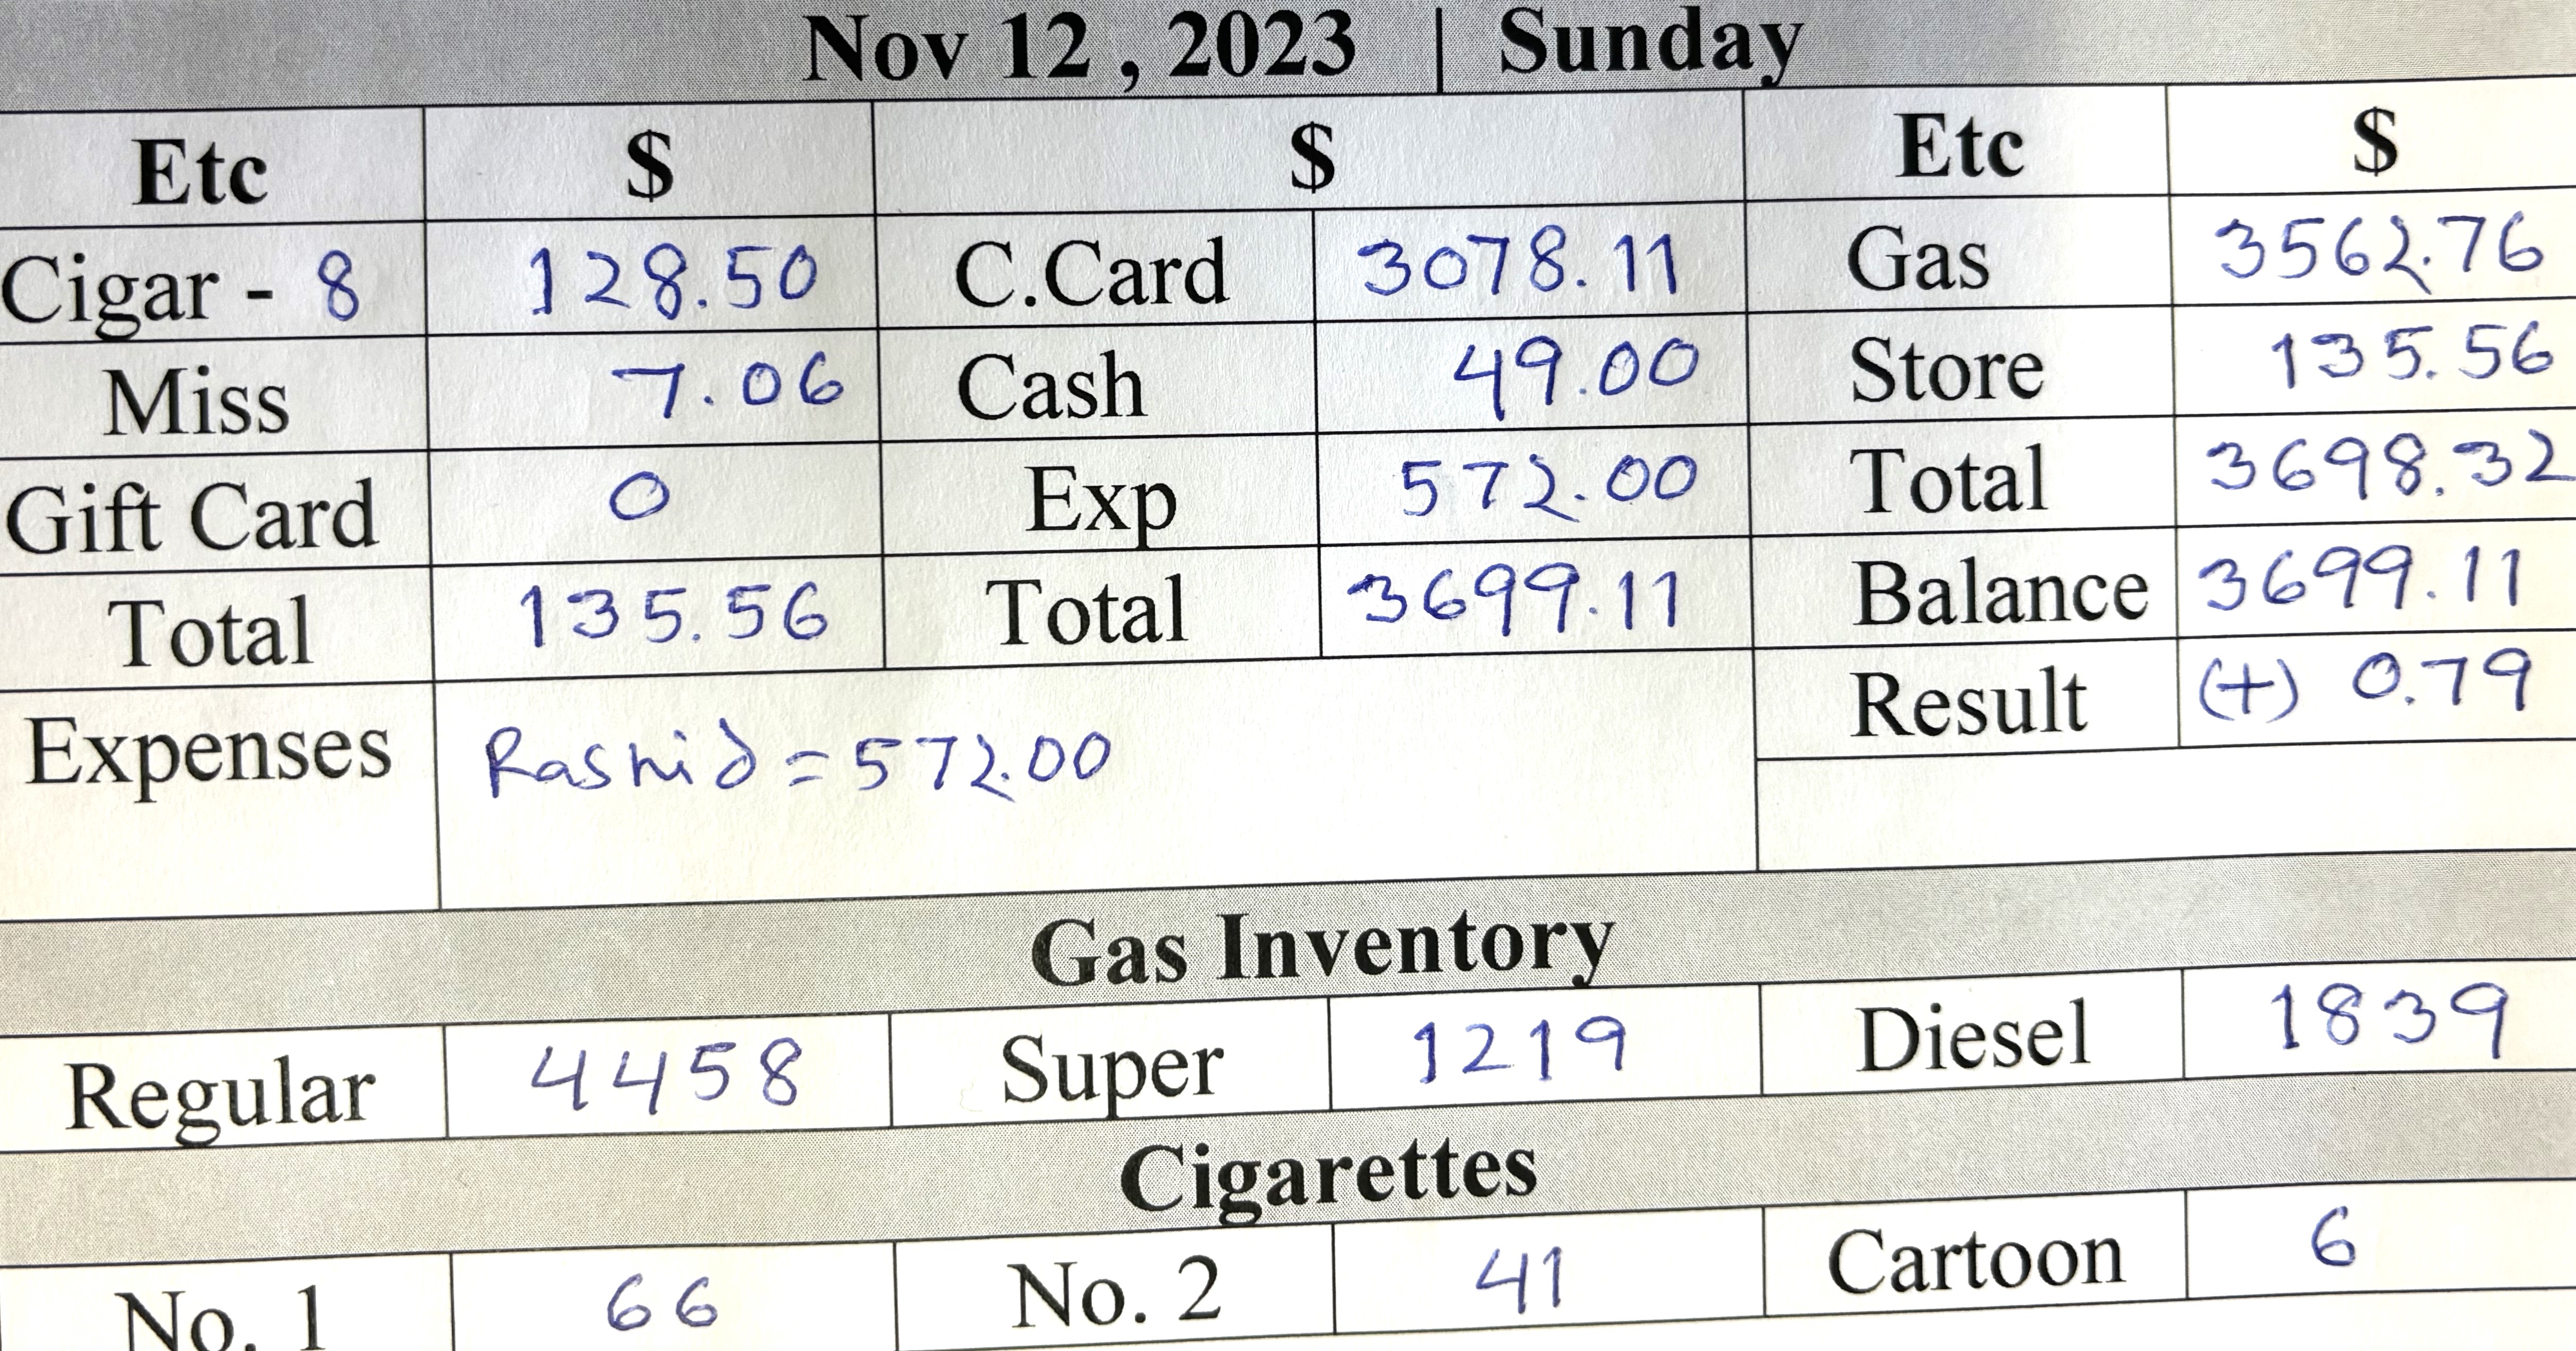 Nov 12 , 2023 | Sunday
Etc $ $ Etc $
Cigar - 8 128.50 C.Card 3078.11 Gas 3562.76
Miss 7.06 Cash 49.00 Store 135.56
Gift Card 0 Exp 572.00 Total 3698.32
Total 135.56 Total 3699.11 Balance 3699.11
Result (+) 0.79
Expenses Rashid = 572.00
Gas Inventory
Regular 4458 Super 1219 Diesel 1839
Cigarettes
No. 1 66 No. 2 41 Cartoon 6